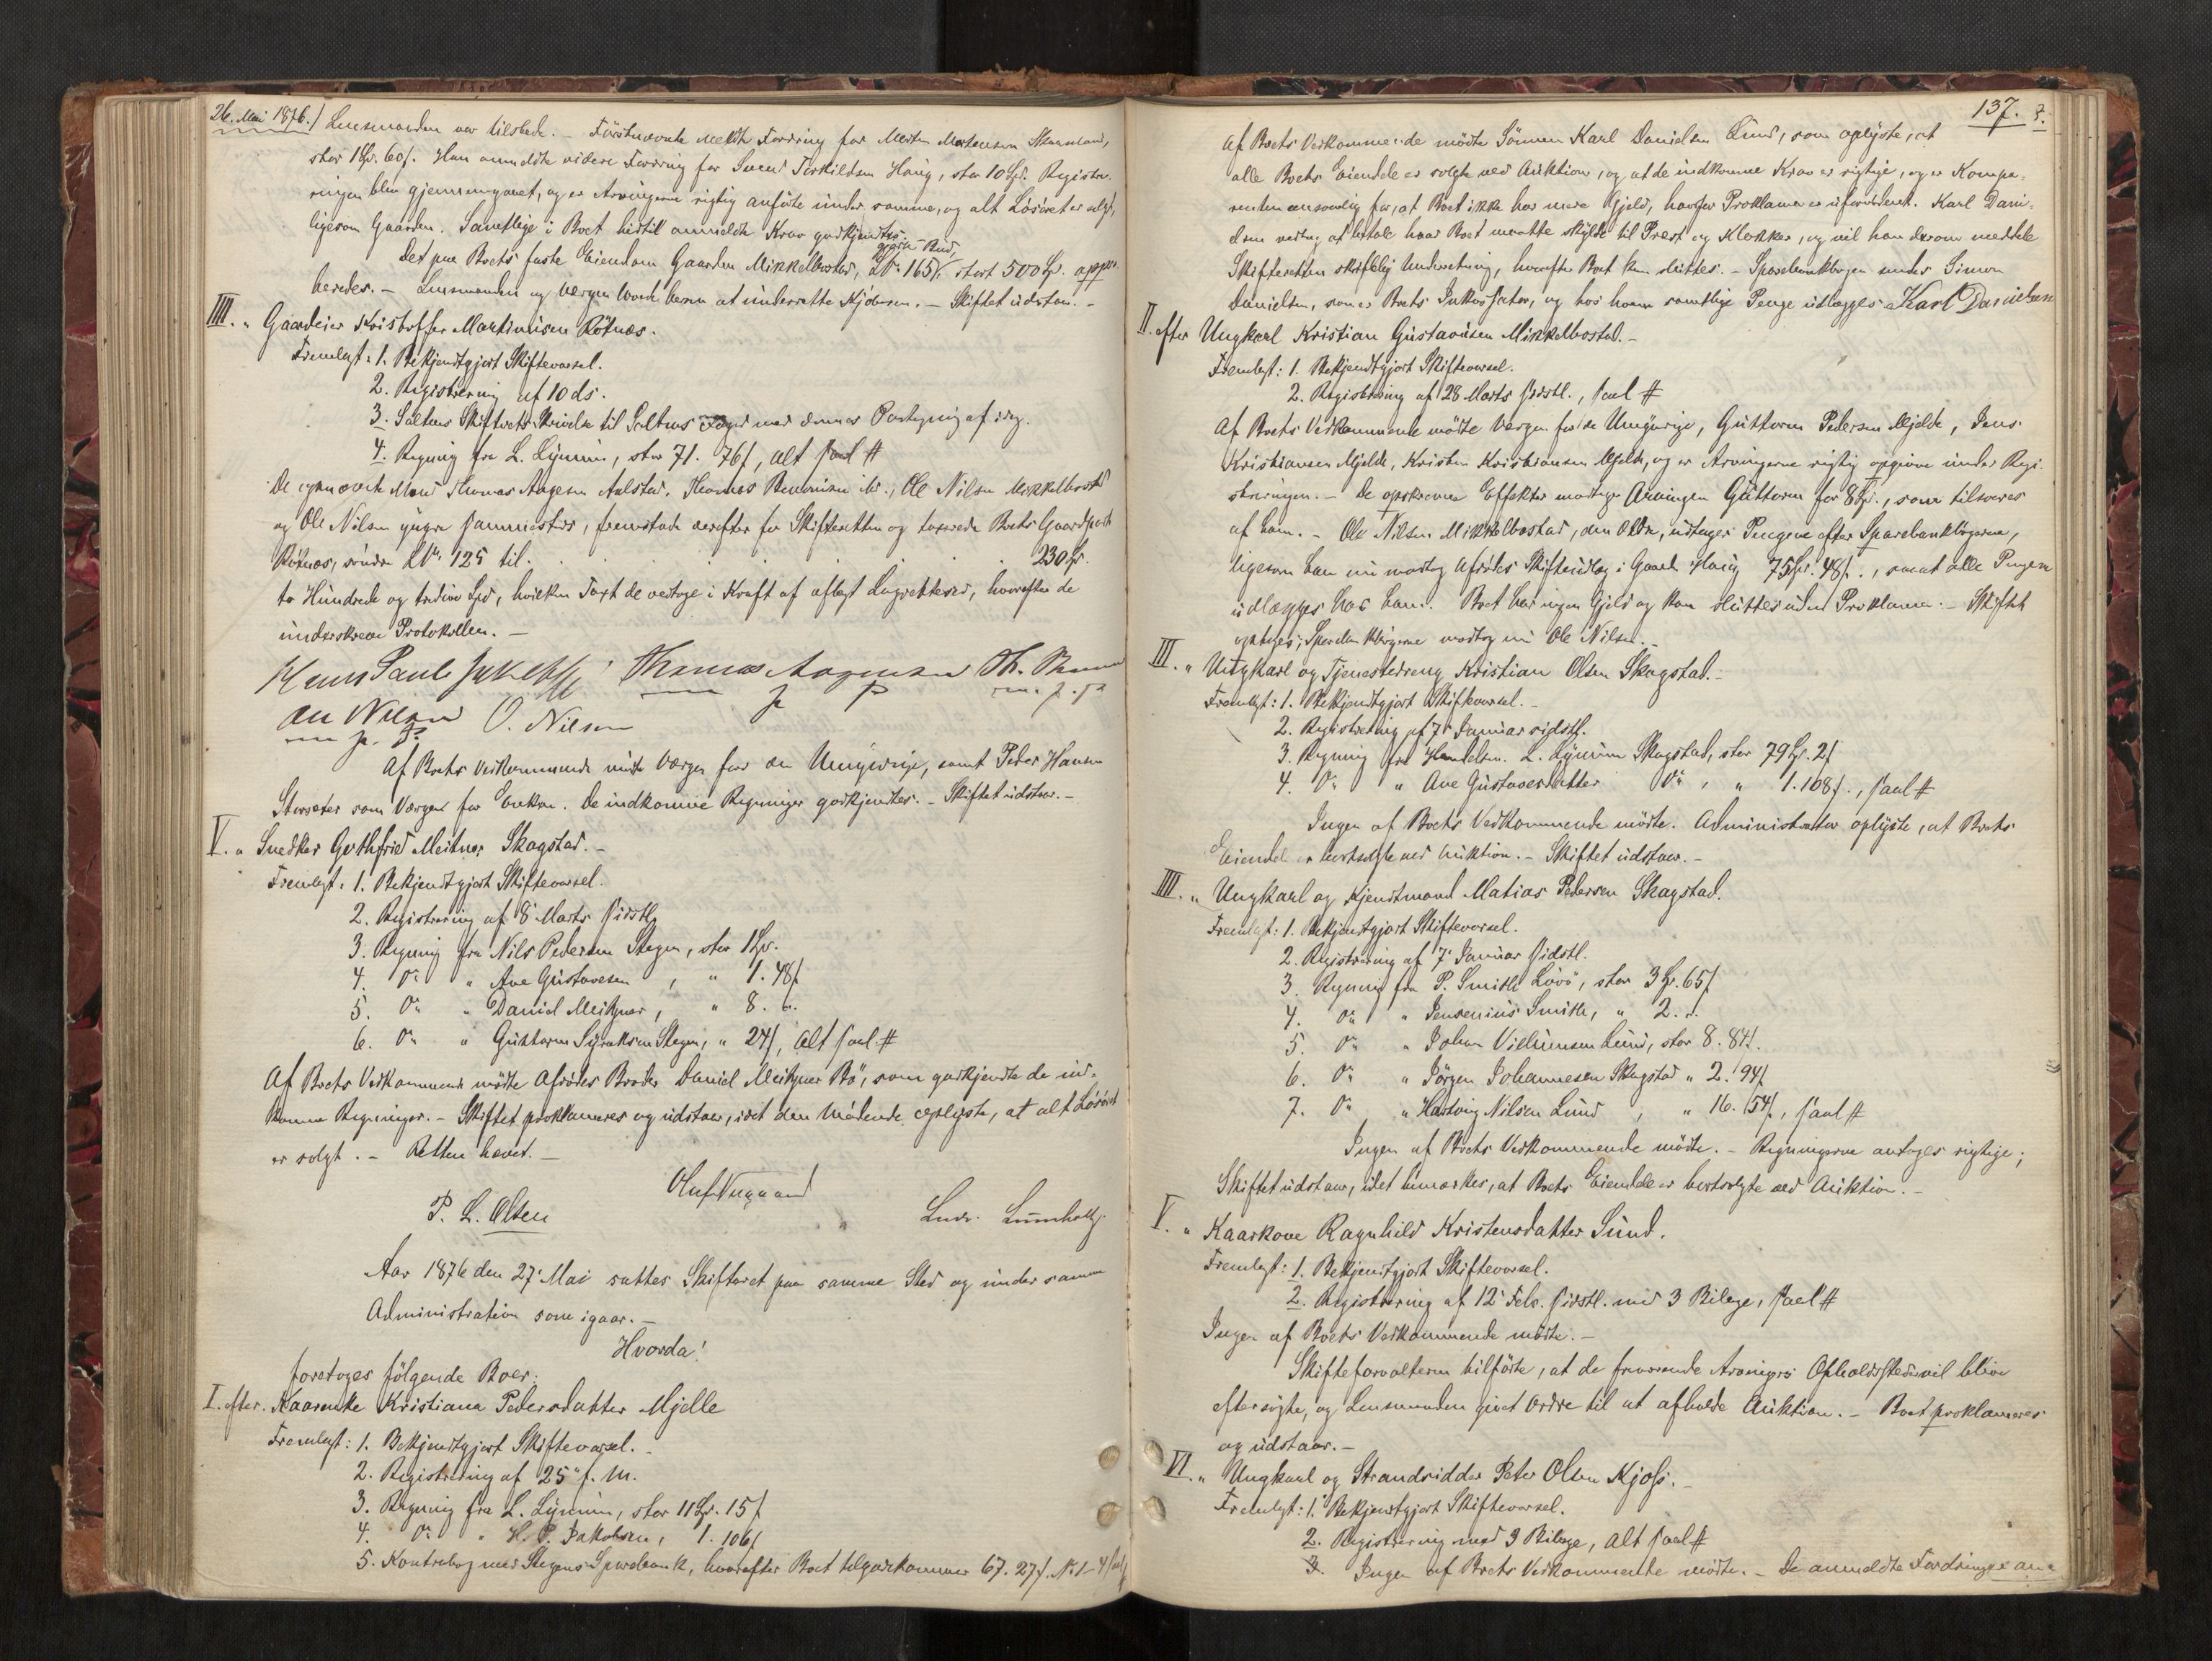 26. Mai 1876.) Lensmanden var tilstede. – Förstnævnte meldte Fordring for Morten Mortensen
stor 1 Spd. 60 s. Han anmeldte videre Fordring for Svend Torkildsen Haug, stor 10 Spd. Registre-
ringen blev gjennemgaaet, og er Arvingerne rigtig anförte under samme, og alt Lösöret er solgt,
ligesom Gaarden. Samtlige i Boet hidtil anmeldte Krav godkjendtes.
Det paa Boets faste Eiendom Gaarden Mikkelbostad, LNo. 165 gjorte Bud, stort 500 Spd. appro-
beredes. – Lensmanden og Vergen lovede herom at underrette Kjöberen. – Skiftet udstaar. –
IIII. " Gaardeier Kristoffer Martinusen Rötnæs.
Fremlagt: 1. Bekjendtgjort Skiftevarsel.
2. Registrering af 10 ds.
3. Saltens Skifterets Skrivelse til Saltens Foged med dennes Paategning af idag.
4. Regning fra L. Lynum, stor 71. 76 s, alt saal. #
De opnævnte Mænd Thomas Aagesen Aalstad, Thomas Benonisen ibd., Ole Nilsen Mikkelbostad
og Ole Nilsen yngre sammesteds, fremstod derefter for Skifteretten og taxerede Boets Gaardpart
Rötnæs, söndre LNo. 125 til . . . . 230 Spd.
to Hundrede og tredive Spd, hvilken Taxt de vedtoge i Kraft af aflagt Lagrettesed, hvorefter de
underskreve Protokollen. –
Thomas Aagesen Th.
m. p. P.
Ole Nilsen O. Nilsen
m. p. P.
Af Boets Vedkommende mödte Vergen for de Umyndige, samt Peder Hansen
som Verge for Enken. De indkomne Regninger godkjendtes. – Skiftet udstaar. –
V. " Snedker Gothfried Meitner Skagstad. –
Fremlagt: 1. Bekjendtgjort Skiftevarsel.
2. Registrering af 8 Marts sidstl.
3. Regning fra Nils Pedersen Stegen, stor 1 Spd.
4. Do " Ane Gustavesen, " 1. 48 s
5. Do " Daniel Meitner, " 8. "
6. Do " Guttorm Syraksen Stegen, " 24 s, alt saal. #
Af Boets Vedkommende mödte Afdödes Broder Daniel Meitner Bö, som godkjendte de ind-
komne Regninger. – Skiftet proklameres og udstaar, idet den Mödende oplyste, at alt Lösöret
er solgt. – Retten hævet. –
P. L. Olsen
Ludv. Lumholtz.
Aar 1876 den 27 Mai sattes Skifteret paa samme Sted og under samme
Administration som igaar. –
Hvorda!
foretoges fölgende Boer:
I. efter. Kaarenke Kristiana Pedersdatter Mjelle
Fremlagt: 1. Bekjendtgjort Skiftevarsel. –
2. Registrering af 25 f. M.
3. Regning fra L. Lynum, stor 11 Spd. 15 s
4. Do " H. P. Jakobsen, 1. 106 s
5. Kontrabog med Stegens Sparebank, hvorefter Boet tilgodekommer 67. 27 s. No 1–4 saal.
137.
Af Boets Vedkommende mödte Sönnen Karl Danielsen Lund, som oplyste, at
alle Boets Eiendele er solgte ved Auktion, og at de indkomne Krav er rigtige, og er Kompa-
renten ansvarlig for, at Boet ikke har mere Gjeld, hvorfor Proklama er ufornödent. Karl Dani-
elsen vedtog at betale hvad Boet maatte skylde til Prest og Klokker, og vil han derom meddele
Skifteretten skriftlig Underretning, hvorefter Boet kan sluttes. – Sparebankbogen sendes Simon
Danielsen, som er Boets Inkassator, og hos ham samtlige Penge udlægges. Karl Danielsen
II. efter Ungkarl Kristian Gustavusen Mikkelbostad. –
Fremlagt: 1. Bekjendtgjort Skiftevarsel.
2. Registrering af 28 Marts sidstl., saal. #
Af Boets Vedkommende mödte Vergen for de Umyndige, Guttorm Pedersen Mjelde, Jens
Kristiansen Mjelde, Kristen Kristiansen Mjelde, og er Arvingerne rigtig opgivne under Regi-
streringen. – De opskrevne Effekter modtager Arvingen Guttorm for 8 Spd., som tilsvares
af ham. – Ole Nilsen Mikkelbostad, den Ældre, udtager Pengene efter Sparebankbögerne,
ligesom han nu modtog Afdödes Skifteudlæg i Gaard Haug 75 Spd. 48 s., saa at alle Pengene
udlægges hos ham. Boet har ingen Gjeld og kan sluttes uden Proklama. – Skiftet
optages; Sparebankbögerne modtog nu Ole Nilsen. –
III. " Ungkarl og Tjenestedreng Kristian Olsen Skagstad. –
Fremlagt: 1. Bekjendtgjort Skiftevarsel. –
2. Registrering af 7 Januar sidstl.
3. Regning fra Handelsm. L. Lynum Skagstad, stor 79 Spd. 2 s
4. Do " Ane Gustavesdatter Do , " 1. 108 s., saal #
Ingen af Boets Vedkommende mödte. Administrator oplyste, at Boets
Eiendele er bortsolgte ved Auktion. – Skiftet udstaar. –
IIII. " Ungkarl og Kjendtmand Matias Pedersen Skagstad.
Fremlagt: 1. Bekjendtgjort Skiftevarsel.
2. Registrering af 7 Januar sidstl.
3. Regning fra P. Smith Lövö, stor 3 Spd. 65 s
4. Do " Jensenius Smith, " 2. "
5. Do " Johan Vilhumsen Lund, stor 8. 84 s.
6. Do " Jörgen Johannesen Skagstad " 2. 94 s
7. Do " Hartvig Nilsen Lund , " 16. 54 s., saal #
Ingen af Boets Vedkommende mödte. – Regningerne antoges rigtige;
Skiftet udstaar, idet bemærkes, at Boets Eiendele er bortsolgte ved Auktion. –
V. " Kaarkone Ragnhild Kristensdatter Sund.
Fremlagt: 1. Bekjendtgjort Skiftevarsel.
2. Registrering af 12 Febr. sidstl. med 3 Bilage, saal #
Ingen af Boets Vedkommende mödte. –
Skifteforvalteren tilförte, at de fraværende Arvingers Opholdssteder vil blive
eftersögte, og Lensmanden givet Ordre til at afholde Auktion. – Boet proklameres
og udstaar. –
VI. " Ungkarl og Strandsidder Peter Olsen Kjoss. –
Fremlagt: 1. Bekjendtgjort Skiftevarsel.
2. Registrering med 3 Bilage, alt saal #
Ingen af Boets Vedkommende mödte. – De anmeldte Fordringer an-